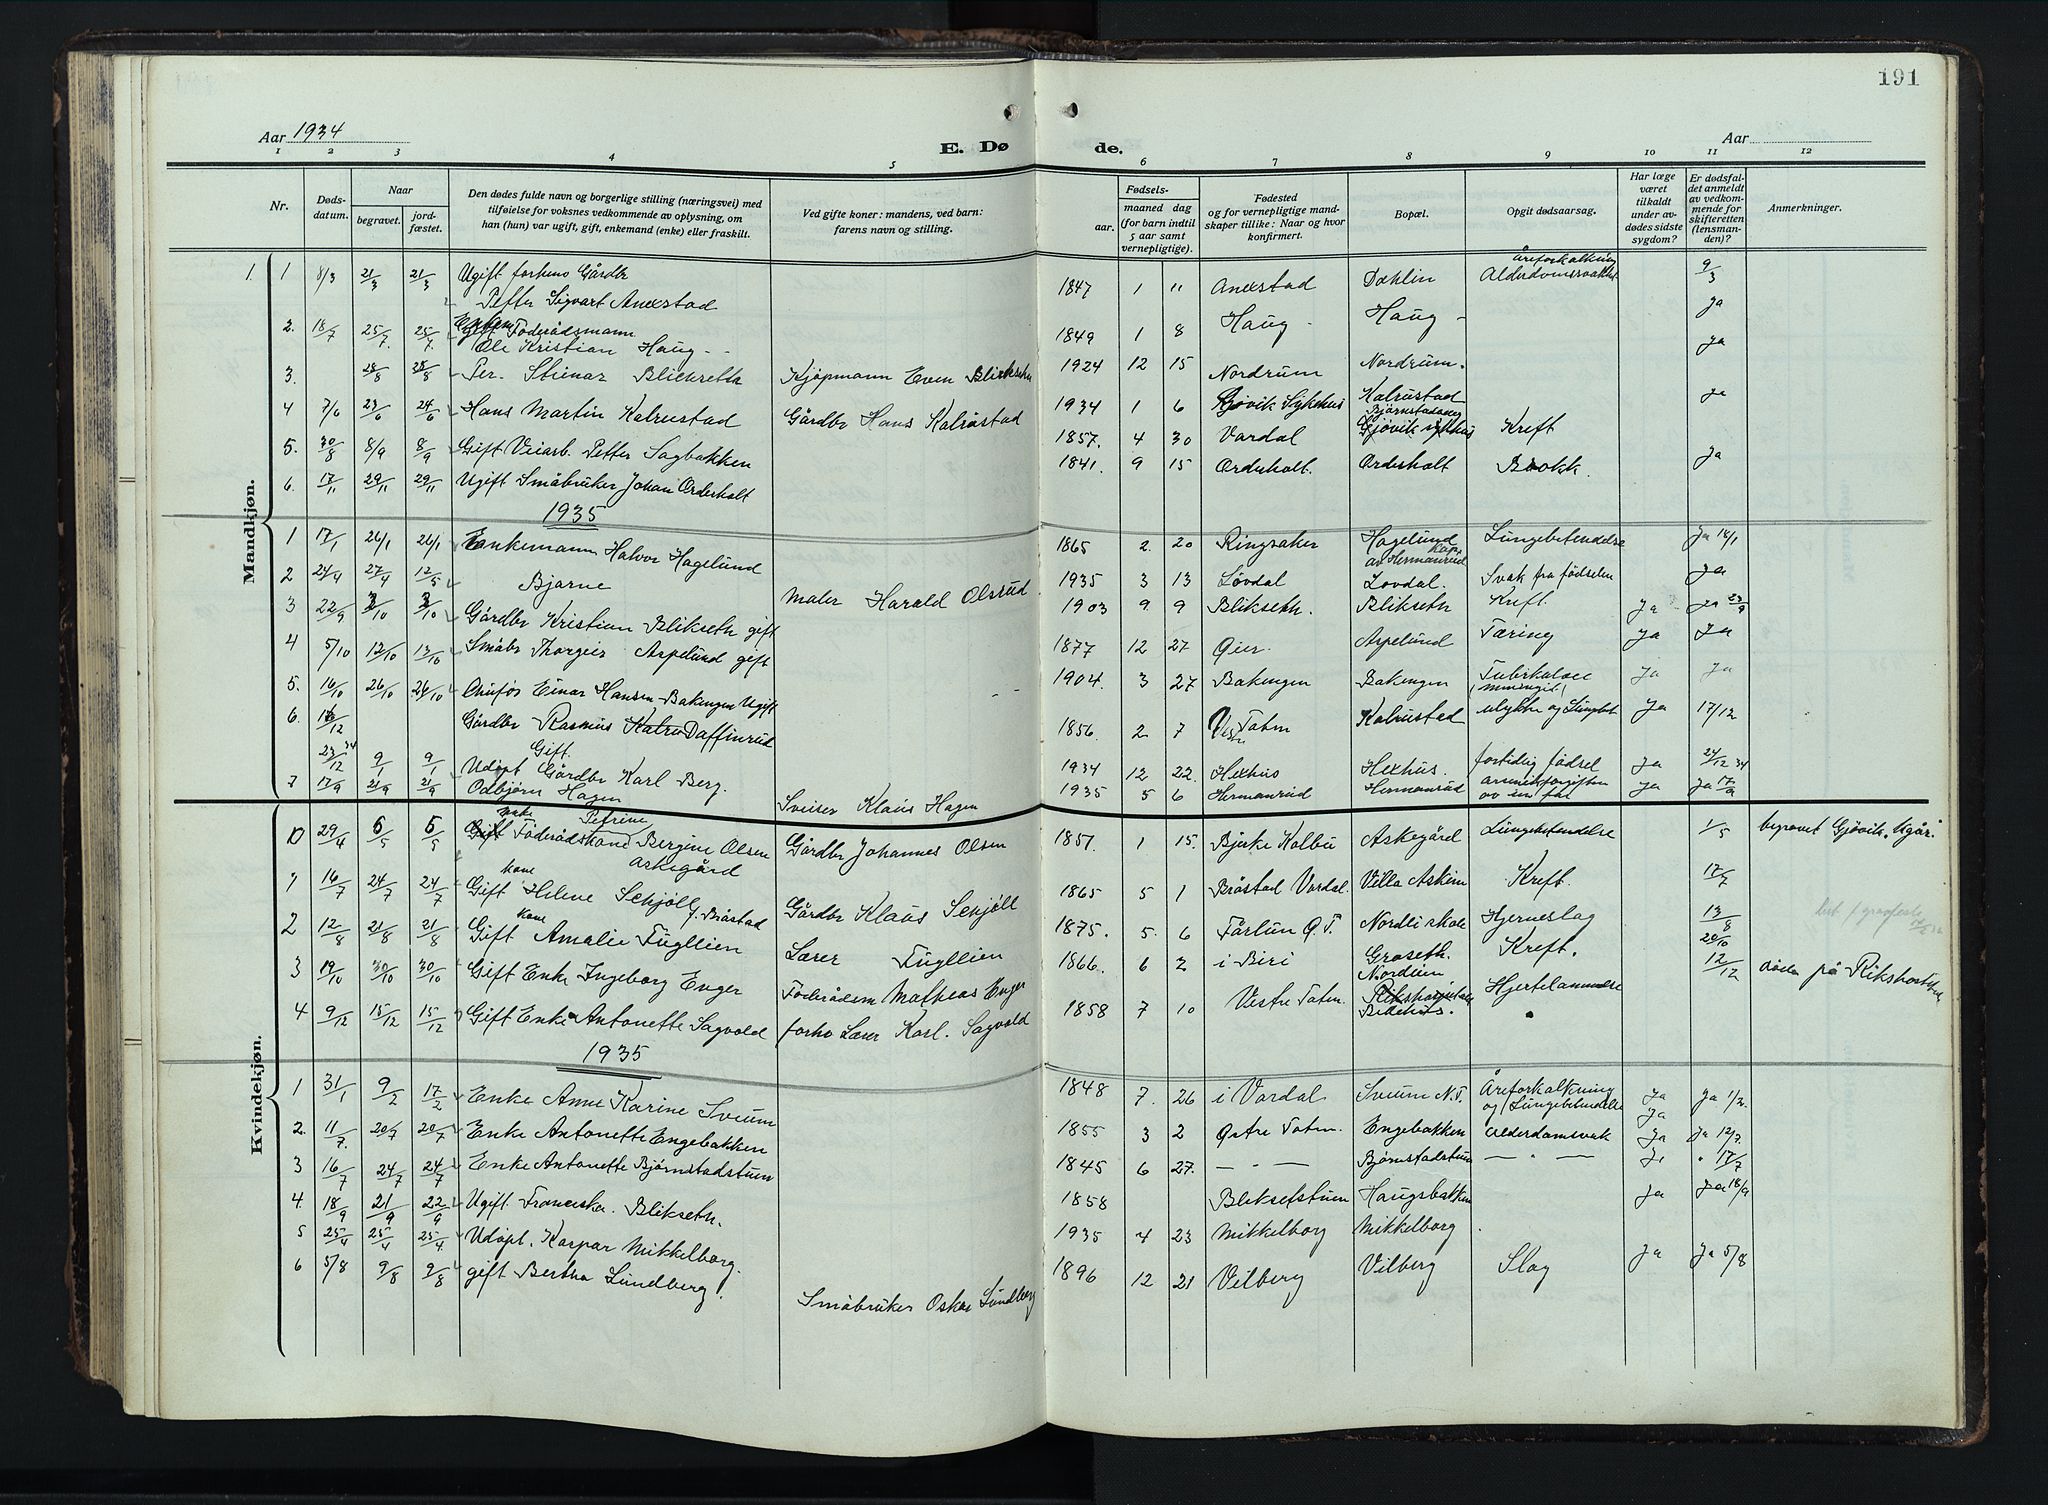 191
Aar 1934
E. Døde.
Aar
1 2 3 4 5 6 7 8 9 10 11 12
Nr.
Døds-
datum.
Naar
begravet.
jord-
fæstet.
Den dødes fulde navn og borgerlige stilling (næringsvei) med
tilføielse for voksnes vedkommende av oplysning, om
han (hun) var ugift, gift, enkemand (enke) eller fraskilt.
Ved gifte koner: mandens, ved barn:
farens navn og stilling.
Fødsels-
aar.
maaned dag
(for barn indtil
5 aar samt
vernepligtige).
Fødested
og for vernepligtige mand-
skaper tillike: Naar og hvor
konfirmert.
Bopæl.
Opgit dødsaarsag.
Har læge
været
tilkaldt
under av-
dødes sidste
sygdom?
Er dødsfal-
det anmeldt
av vedkom-
mende for
skifteretten
(lensman-
den)?
Anmerkninger.
Mandkjøn.
1. 1 8/3 21/3 21/3 Ugift forhens Gårdbr Petter Sigvart Anexstad 1847 1 11 Anexstad Dæhlin Åreforkalkning 9/3
2. 18/7 25/7 25/7 Føderådsmann Ole Kristian Haug 1849 1 8 Haug Haug Ja
3. 28/8 28/8 Per Steinar Kjøpmann Even 1924 12 15 Nordrum Nordrum. Ja
4 7/6 23/6 24/6 Hans Martin Kalrustad Gårdbr Hans Kalrustad 1934 1 6 Gjøvik Sykehus Kalrustad Ja
5. 30/8 8/9 8/9 Gift Veiarb. Petter Sagbakken 1857. 4 30 Vardal Gjøvik sykhus Kreft
6. 17/11 29/11 29/11 Ugift Småbruker Johan Orderholt 1841. 9 15 Orderholt. Orderholt Brokk. Ja
1935
1 17/1 26/1 26/1 Enkemann Halvor Hagelund 1865 2. 20 Ringsaker Hagelund Lungebetendelse Ja 18/1
2 24/4 27/4 12/5 Bjarne Maler Harald Olsrud 1935 3 13 Løvdal Lovdal. Svak fra fødselen Ja
3 22/9 3/10 3/10 Gårdbr Kristian Blikseth gift 1903 9 9 Blikseth. Blikseth Kreft. Ja Ja 23/9
4 5/10 12/10 13/10 Småbr Thorgeir Aspelund gift 1877 12 27 Øier. Aspelund Tæring Ja Ja
5. 16/10 26/10 26/10 Einar Hansen Bakengen Ugift 1904. 3 27 Bakengen Bakengen Ja Ja
6. 16/12 Gårdbr Rasmus Daffinrud Gift. 1856. 2 7 Totn Kalrustad ulykke og Ja 17/12
23/12 34 9/1 9/1 Udøpt Gårdbr Karl Berg. 1934 12 22. Hexhus Hexhus. fortidlig fødsel Ja 24/12 34
7 17/9 21/9 21/9 Odbjørn Hagen Sveiser Klaus Hagen 1935 5 6 Hermanrud Hermanrud Ja Ja 17/9
Kvindekjøn.
10 29/4 5/5 5/5 enke Petrine Bergine Olsen Askegård Gårdbr Johannes Olsen 1851. 1 15. Bjerke Kolbu Askegård Lungebetendelse 1/5 Gjøvik.
1 16/7 24/7 24/7 Gift kone Helene Schjøll f. Bråstad Gårdbr Klaus Schjøll 1865 5 1 Bråstad Vardal. Villa Askim Kreft. 17/7
2 12/8 21/8 21/8 Gift kone Amalie Fugllien Lærer Fugllien 1875. 5. 6 Nordli skole Hjerneslag 13/8
3 19/10 30/10 30/10 Gift Enke Ingeborg Enger Føderådsm Matheas Enger 1866. 6 2 i Biri Kreft. 20/10
4 9/12 15/12 15/12 Gift Enke Antonette Sagvold forho Lærer Karl. Sagvold 1858 7 10 Vestre Totn. Hjertelammelse 12/12 døde på Rikshospitalet
1935
1 31/1 9/2 17/2 Enke Anne Karine Sveum 1848 7. 26 i Vardal Sveum N.T. Åreforkalkning og Lungebetendelse Ja Ja 1/2.
2. 11/7. 20/7 20/7 Enke Antonette Engebakken 1855 3 2 Østre Totn. Engebakken Alderdomsvak Ja Ja 12/7
3 16/7 24/7 24/7 Enke Antonette Bjørnstadstuen 1845 6 27. — „ — Bjørnstadstuen — „ — Ja „ 17/7
4. 18/9 21/9 22/9 Ugift Franciska. Blikseth. 1858 Bliksetstuen Haugsbakken Ja Ja 18/9
5 25/4 25/4 25/4 Udøpt. Kaspar Mikkelborg. 1935 4 23 Mikkelborg Mikkelborg
6 5/8 9/8 9/8 gift Bertha Lundberg. Småbruker Oskar Lundberg 1896 12 21 Vilberg Vilberg Slag Ja Ja 5/8